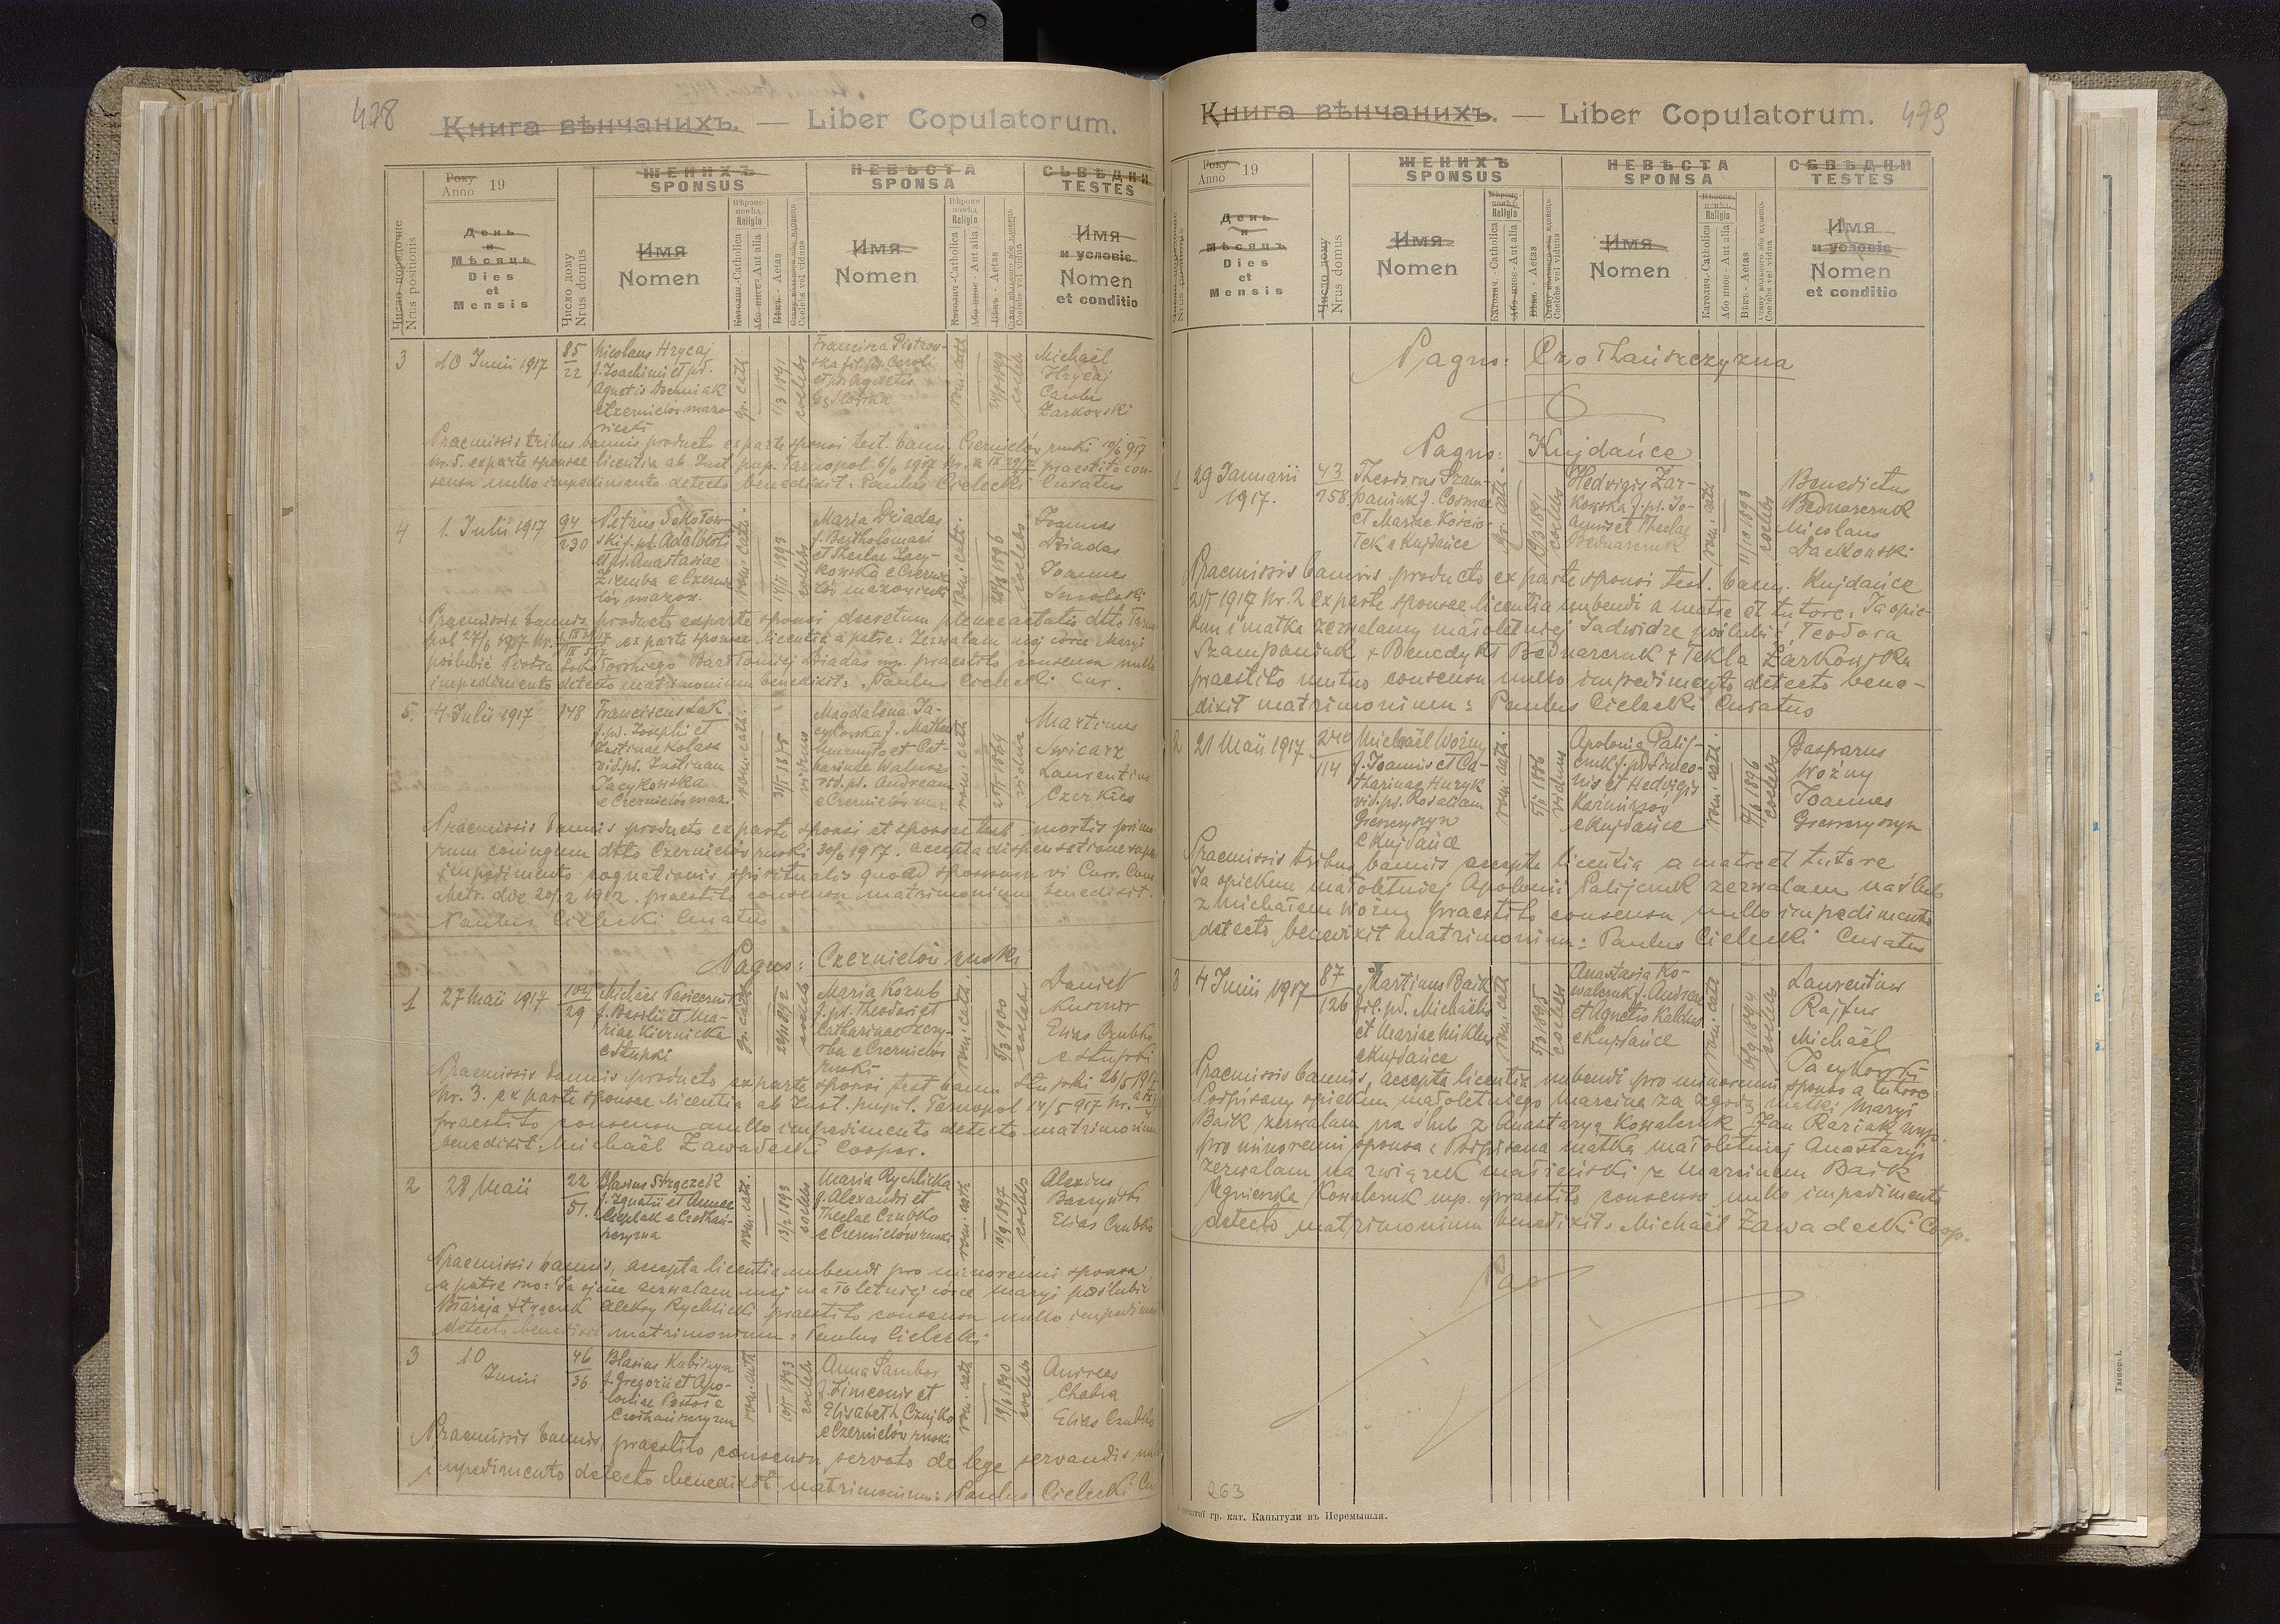 478
Книга вѣнчанихъ. — Liber Copulatorum.
Року
Anno 19
ЖЕНИХЪ
SPONSUS
НЕВѢСТА
SPONSA
СЬВѢДНИ
TESTES
Число порядочне
Nrus positionis
День
и
Мѣсяць
Dies
et
Mensis
Число дому
Nrus domus
Имя
Nomen
Religio
Католич.-Catholica
Або иное - Aut alia
Вѣкъ - Aetas
Coelebs vel viduus
Имя
Nomen
Religio
Католич.-Catholica
Або иное - Aut alia
Вѣкъ - Aetas
Coelebs vel vidua
Имя
и условіе
Nomen
et conditio
3
10 Junii 1917
85
22
Nicolaus Hrycaj
f. Joachimi et pd.
Agnetis Bochniak
e Czernielów mazo-
wiecki
gr. cath
1/3 1891
coelebs
Franciscka Piotrow-
ska fil. pd. Caroli
et pd. Agnetis
rom. cath
1899
coelebs
Michaël
Hrycaj
Carolus
Żarkowski
Praemissis tribus bannis producto ex parte sponsi test. bann. Czernielów ruski 10/6 917
Nr. 5. ex parte sponsae licentia ab Inst. pup. Tarnopol 6/6 1917 Nr. praestito con-
sensu nullo impedimento detecto benedixit: Paulus Cielecki Curatus
4
1. Julii 1917
94
230
Petrus Sokołow-
ski f. pd. Adalberti
et pd. Anastasiae
Ziemba e Czernie-
lów mazow.
rom. cath.
1893
coelebs
Maria Dziadas
f. Bartholomaei
et Theclae Jacy-
kowska e Czernie-
lów mazowiecki
rom. cath.
1896
coelebs
Joannes
Dziadas
Joannes
Praemissis bannis producto ex parte sponsi decretum plenae aetatis dtto Tarno-
pol 27/6 1917 Nr. ex parte sponsae licentia a patre: Zezwalam mej córce Maryi
poślubić Piotra Sokołowskiego Bartłomiej Dziadas mp. praestito consensu nullo
impedimento detecto matrimonium benedixit: Paulus Cielecki Cur.
5.
4 Julii 1917
148
Franciscus Łak
f. pd. Josephi et
Justinae Kolasa
vid. pd. Justinam
Jacykowska
e Czernielów maz.
rom. cath.
1875
viduus
Magdalena Ja-
cykowska f. Mathei
et Cat-
harinae
vid. pd. Andream
e Czernielów maz.
rom. cath
1869
vidua
Martinus
Świcarz
Laurentius
Czerkies
Praemissis bannis producto ex parte sponsi et sponsae test. mortis prio-
rum coniugum dtto Czernielów ruski 30/6 1917. accepta dispensatione super
impedimento cognationis spiritualis quoad sponsum vi Curr. Cons.
Metr. dde 20/2 1912. praestito consensu matrimonium benedixit.
Paulus Cielecki Curatus
Pagus: Czernielów ruski
1
27 Maii 1917
104
29
Michaël Pasiecznik
f. Basilii et Ma-
riae Kiernicka
e Stupki
gr. cath
29/11 1892
coelebs
Maria Kozub
f. pd. Theodori et
Catharinae
e Czernielów
ruski
rom. cath
5/3 1900
coelebs
Daniel
Kusznir
Elias Czubko
e Stupki
Praemissis bannis producto ex parte sponsi test. bann. Stupki 26/5 1917
Nr. 3. ex parte sponsae licentia ab Inst. pupil. Tarnopol 14/5 917 Nr.
praestito consensu nullo impedimento detecto matrimonium
benedixit: Michaël Zawadecki Cooper.
2
28 Maii
22
51.
Blasius Strączek
f. Ignatii et Annae
Cieplak e Czołhań-
szczyzna
rom. cath.
13/2 1893
coelebs
Maria Rychlicka
f. Alexandri et
Theclae Czubko
e Czernielów ruski
rom. cath
19/9 1897
coelebs
Alexius
Elias Czubko
Praemissis bannis, accepta licentia nubendi pro minorenni sponsa
a patre suo: Ja ojciec zezwalam mej małoletniej córce Maryi poślubić
Błażeja Strączek Aleksy Rychlicki praestito consensu nullo impedimento
detecto benedixit matrimonium: Paulus Cielecki
3
10
Junii
46
36
Blasius Kubiszyn
f. Gregorii et Apo-
loniae
Czołhańszczyzna
rom. cath
1893
coelebs
Anna Sambor
f. Simeonis et
Elisabeth Czujko
e Czernielów ruski
rom. cath
1890
coelebs
Andreas
Chaba
Elias Czubko
Praemissis bannis, praestito consensu, servato de lege servandis nullo
impedimento detecto benedixit matrimonium: Paulus Cielecki Cur
Книга вѣнчанихъ. — Liber Copulatorum.
479
Року
Anno 19
ЖЕНИХЪ
SPONSUS
НЕВѢСТА
SPONSA
СЬВѢДНИ
TESTES
Nrus positionis
День
и
Мѣсяць
Dies
et
Mensis
Число дому
Nrus domus
Имя
Nomen
Religio
Католич.-Catholica
Або иное - Aut alia
Вѣкъ - Aetas
Coelebs vel viduus
Имя
Nomen
Religio
Католич.-Catholica
Або иное - Aut alia
Вѣкъ - Aetas
Coelebs vel vidua
Имя
и условіе
Nomen
et conditio
Pagus: Czołhańszczyzna
Pagus: Kujdańce
1
29 Januarii
1917.
43
258
Theodorus Szam-
paniuk f. Cosmae
et Mariae Kościo-
łek e Kujdańce
gr. cath.
19/3 1891
coelebs
Hedvigis Żar-
kowska f. pd. Jo-
annis et Theclae
Bednarczuk
rom. cath
11/10 1893
coelebs
Benedictus
Bednarczuk
Nicolaus
Daćkowski
Praemissis bannis producto ex parte sponsi test. bann. Kujdańce
21/1 1917 Nr. 2 ex parte sponsae licentia nubendi a matre et tutore: Ja opie-
kun i matka zezwalamy małoletniej Jadwidze poślubić Teodora
Szampaniuk + Benedykt Bednarczuk + Tekla Żarkowska
praestito mutuo consensu nullo impedimento detecto bene-
dixit matrimonium: Paulus Cielecki Curatus
2
21 Maii 1917
246
114
Michaël Woźny
f. Joannis et Ca-
tharinae Huzyk
vid. pd. Rosaliam
Greszczyszyn
e Kujdańce
rom. cath.
1886
viduus
Apolonia Palij-
czuk f. pd. Simeo-
nis et Hedvigis
e Kujdańce
rom. cath.
1896
coelebs
Gasparus
Woźny
Joannes
Greszczyszyn
Praemissis tribus bannis accepta licentia a matre et tutore
Ja opiekun małoletniej Apolonii Palijczuk zezwalam na ślub
z Michałem Woźny praestito consensu nullo impedimento
detecto benedixit matrimonium: Paulus Cielecki Curatus
3
4 Junii 1917
87
126
Martinus Baik
fil. pd. Michaëlis
et Mariae Miklus
e Kujdańce
rom. cath
5/3 1895
coelebs
Anastasia Ko-
walczuk f. Andreae
et Agnetis Kaldus
e Kujdańce
rom. cath
coelebs
Laurentius
Rajfur
Michaël
Jacykowski
Praemissis bannis, accepta licentia nubendi pro minorenni sponso a tutore
Podpisany opiekun małoletniego Marcina za zgodą matki Maryi
Baik zezwalam na ślub z Anastazyą Kowalczuk Jan Raziak mp.
pro minorenni sponsa: Podpisana matka małoletniej Anastazyi
zezwalam na związek małżeński z Marcinem Baik
Agnieszka Kowalczuk mp. praestito consensu nullo impedimento
detecto matrimonium benedixit: Michaël Zawadecki Coop.
Pag
263
гр. кат. Капытули въ Перемышли.